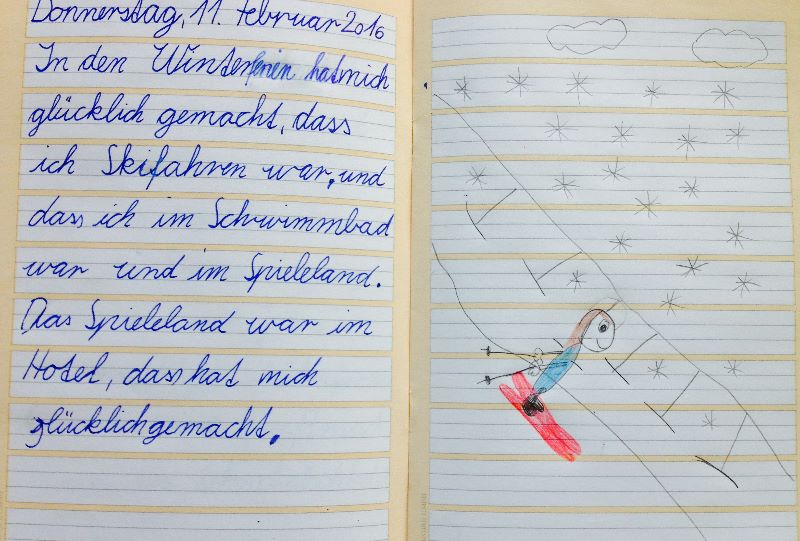 Donnerstag, 11. Februar 2016
In den Winterferien hat mich
glücklich gemacht, dass
ich Skifahren war, und
dass ich im Schwimmbad
war und im Spieleland.
Das Spieleland war im
Hotel, dass hat mich
glücklich gemacht.